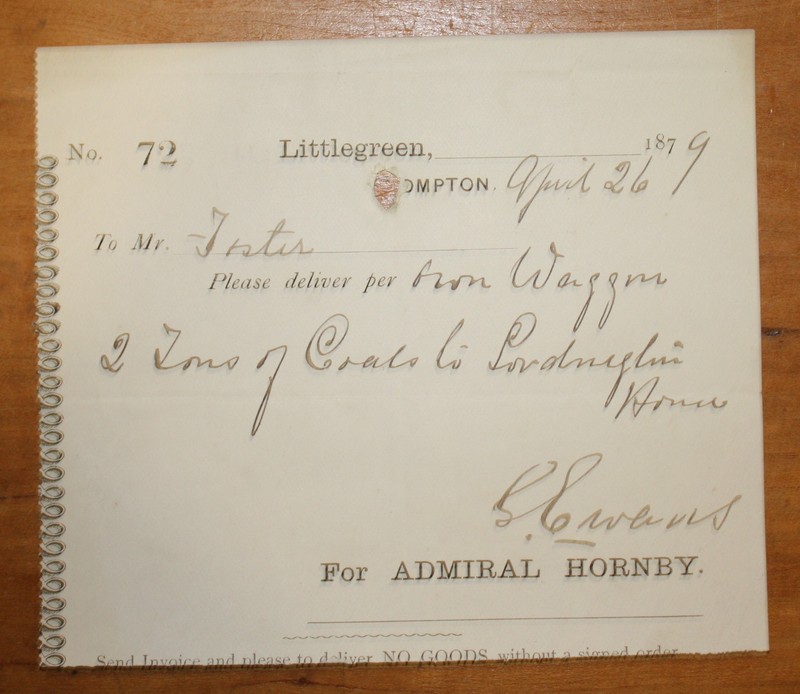 No. 72 Littlegreen, 1879
OMPTON. April 26
To Mr. Foster
Please deliver per own Waggon
2 Tons of Coals to
House
G. Ewans
For ADMIRAL HORNBY.
Send Invoice and please to deliver NO GOODS without a signed order